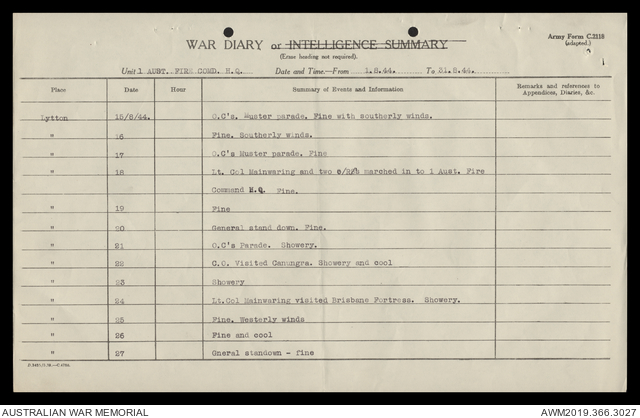 Army Form C.2118
(adapted.)
WAR DIARY or INTELLIGENCE SUMMARY
(Erase heading not required).
Unit 1 AUST. FIRE COMD. H.Q. Date and Time—From 1.8.44. To 31.8.44.
Place Date Hour Summary of Events and Information Remarks and references to Appendices, Diaries, &c.
Lytton 15/8/44. O.C's. Muster parade. Fine with southerly winds.
" 16 Fine. Southerly winds.
" 17 O.C's Muster parade. Fine
" 18 Lt. Col Mainwaring and two marched in to 1 Aust. Fire
Command H.Q. Fine.
" 19 Fine
" 20 General stand down. Fine.
" 21 O.C's Parade. Showery.
" 22 C.O. Visited Canungra. Showery and cool
" 23 Showery
" 24 Lt.Col Mainwaring visited Brisbane Fortress. Showery.
" 25 Fine. Westerly winds
" 26 Fine and cool
" 27 Gneral standown - fine
AUSTRALIAN WAR MEMORIAL AWM2019.366.3027